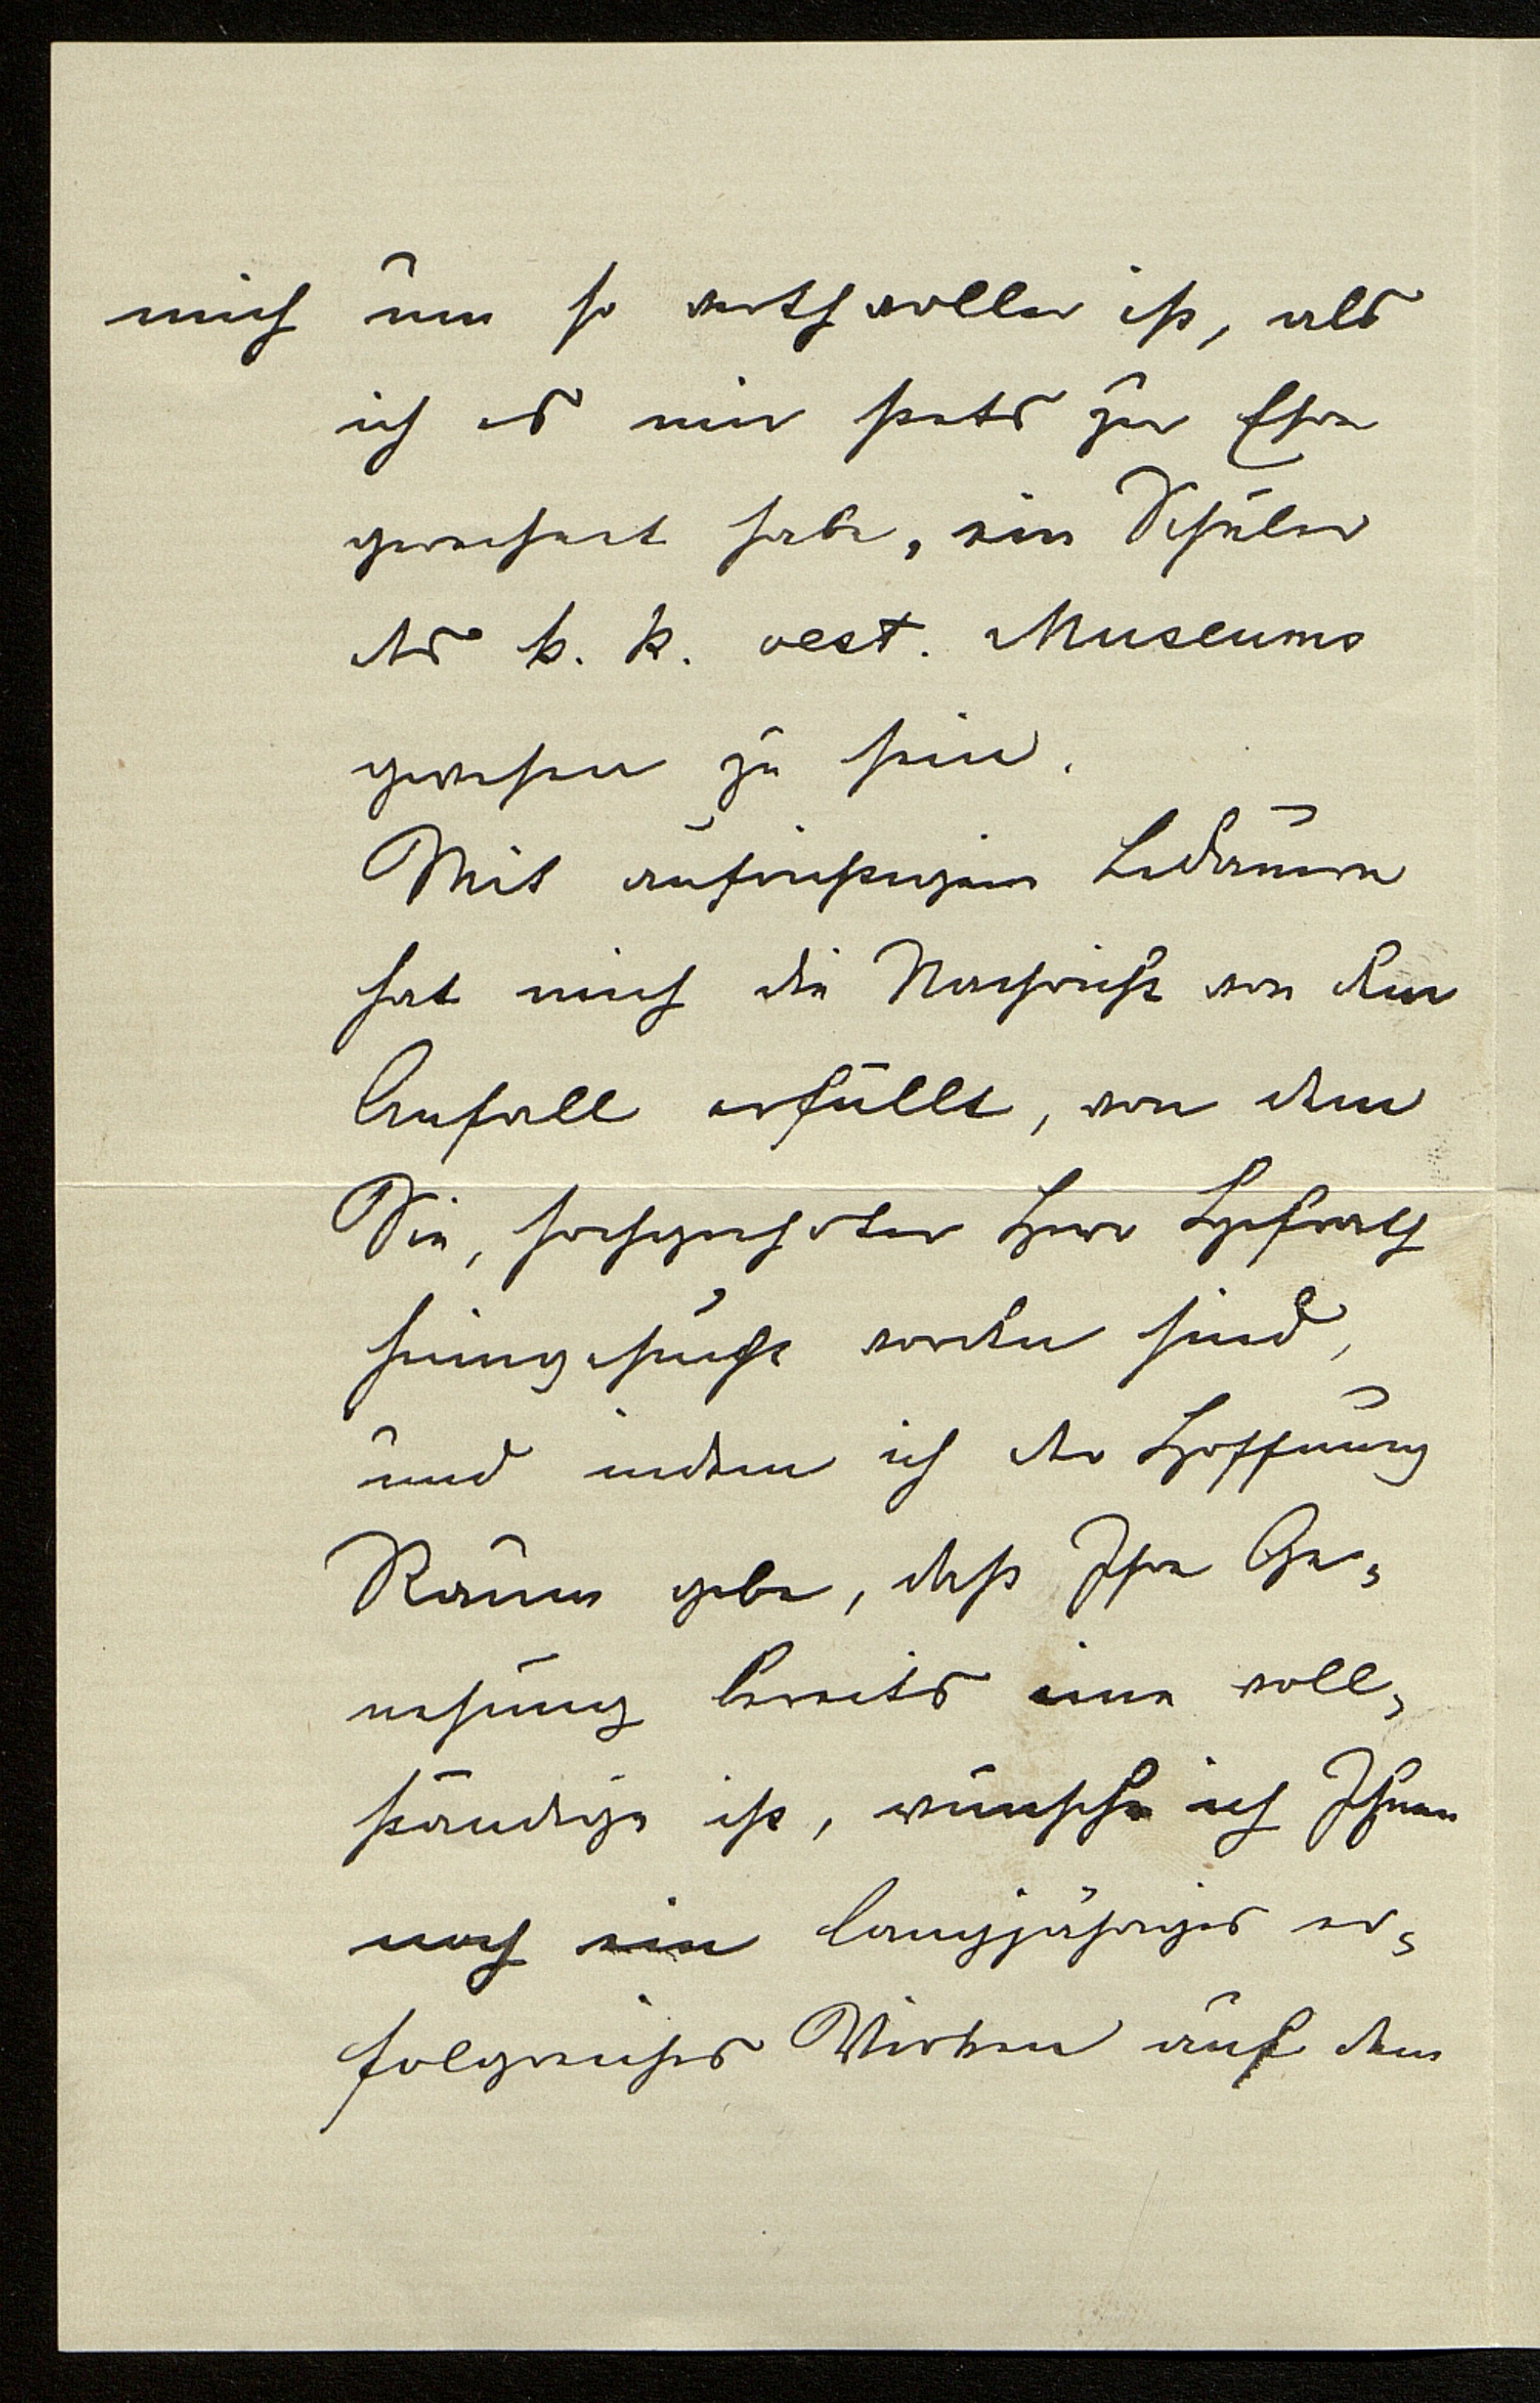 mich um so werthvoller ist, als
ich es mir stets zur Ehre
gerechnet habe, ein Schüler
des k. k. oest. Museums
gewesen zu sein.
Mit aufrichtigem Bedauern
hat mich die Nachricht von dem
Anfall erfüllt, von dem
Sie, hochgeehrter Herr Hofrath
heimgesucht worden sind,
und indem ich der Hoffnung
Raum gebe, dass Ihre Ge-
nesung bereits eine voll-
ständige ist, wünsche ich Ihnen
noch ein langjähriges er-
folgreiches Wirken auf dem